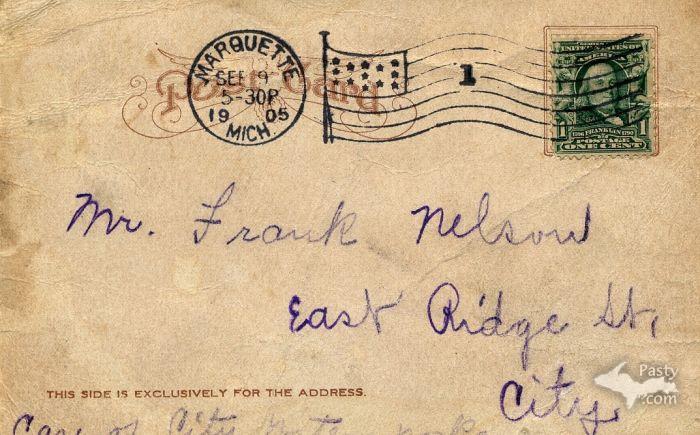 MARQUETTE
SEP 19
5-30P
1905
MICH.
1
Post Card
SERIES 1902
UNITED STATES OF
AMERICA
1 1706 FRANKLIN 1790 1
POSTAGE
ONE CENT
Mr. Frank Nelson
East Ridge St,
City
THIS SIDE IS EXCLUSIVELY FOR THE ADDRESS.
Care of City
Pasty
.com